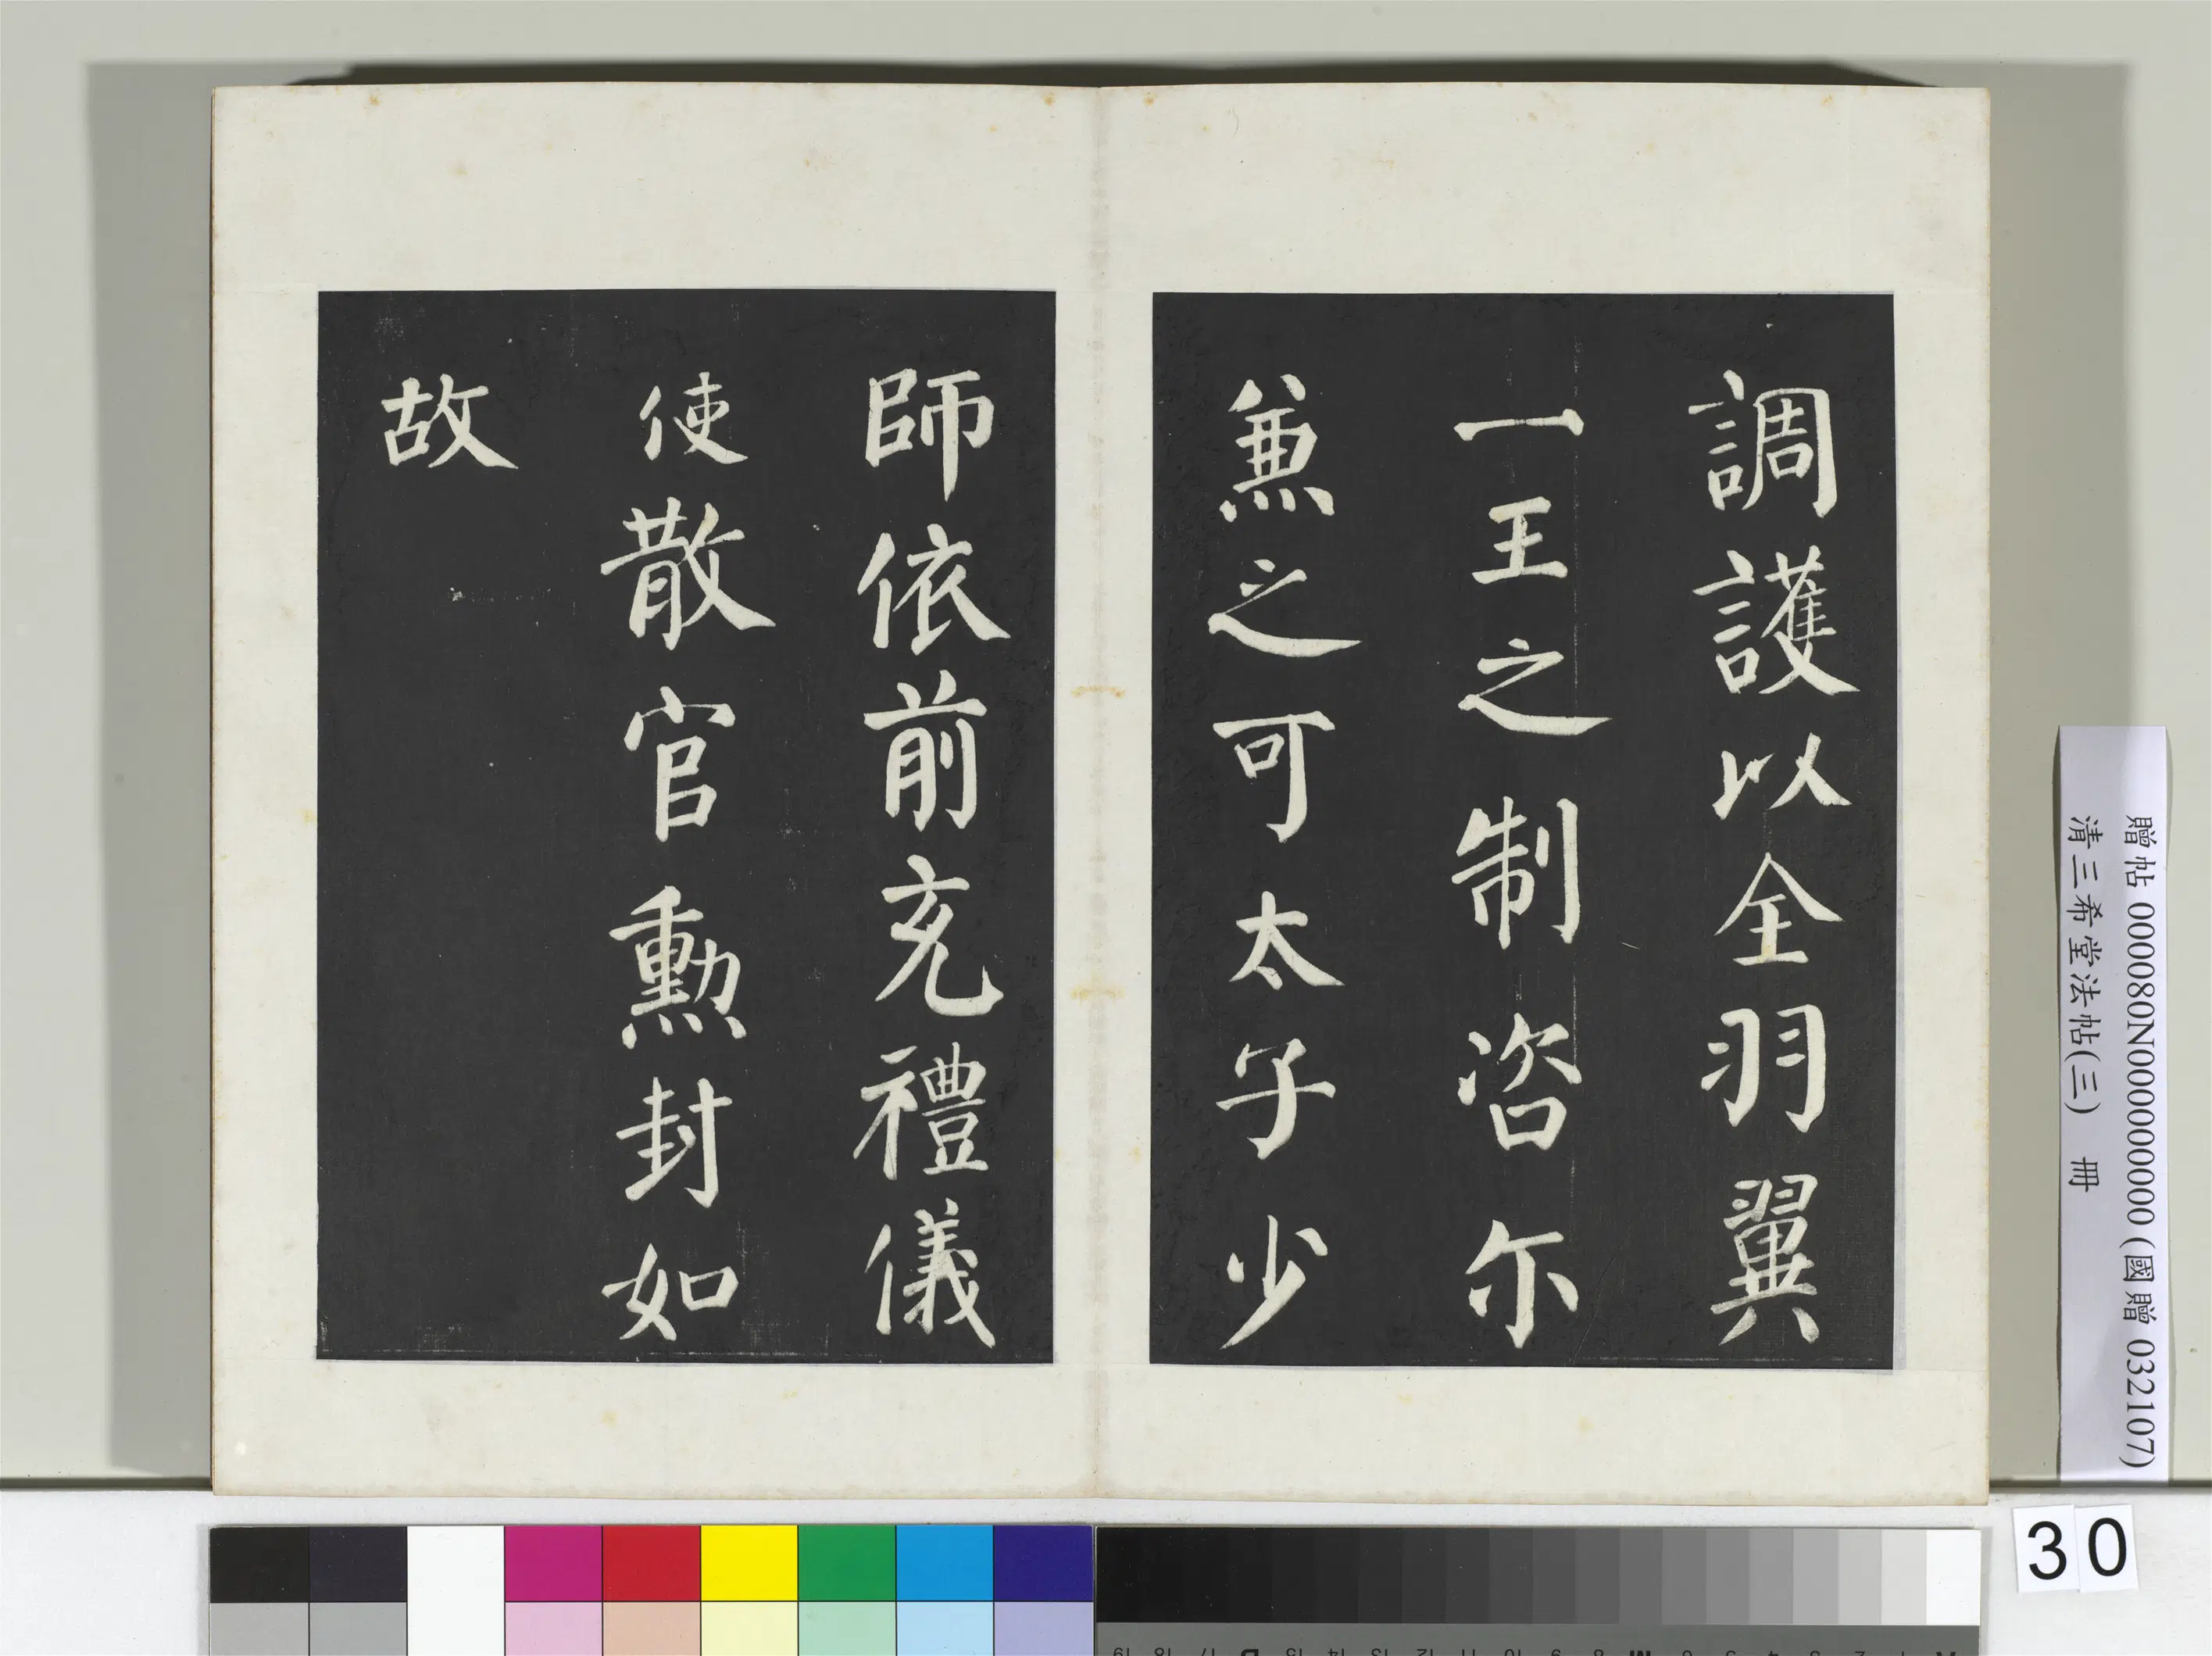 調護以全羽翼
一王之制咨尒
兼之可太子少
師依前充禮儀
使散官勳封如
故
贈帖 000080N000000000 (國贈 032107)
清三希堂法帖(三) 冊
30